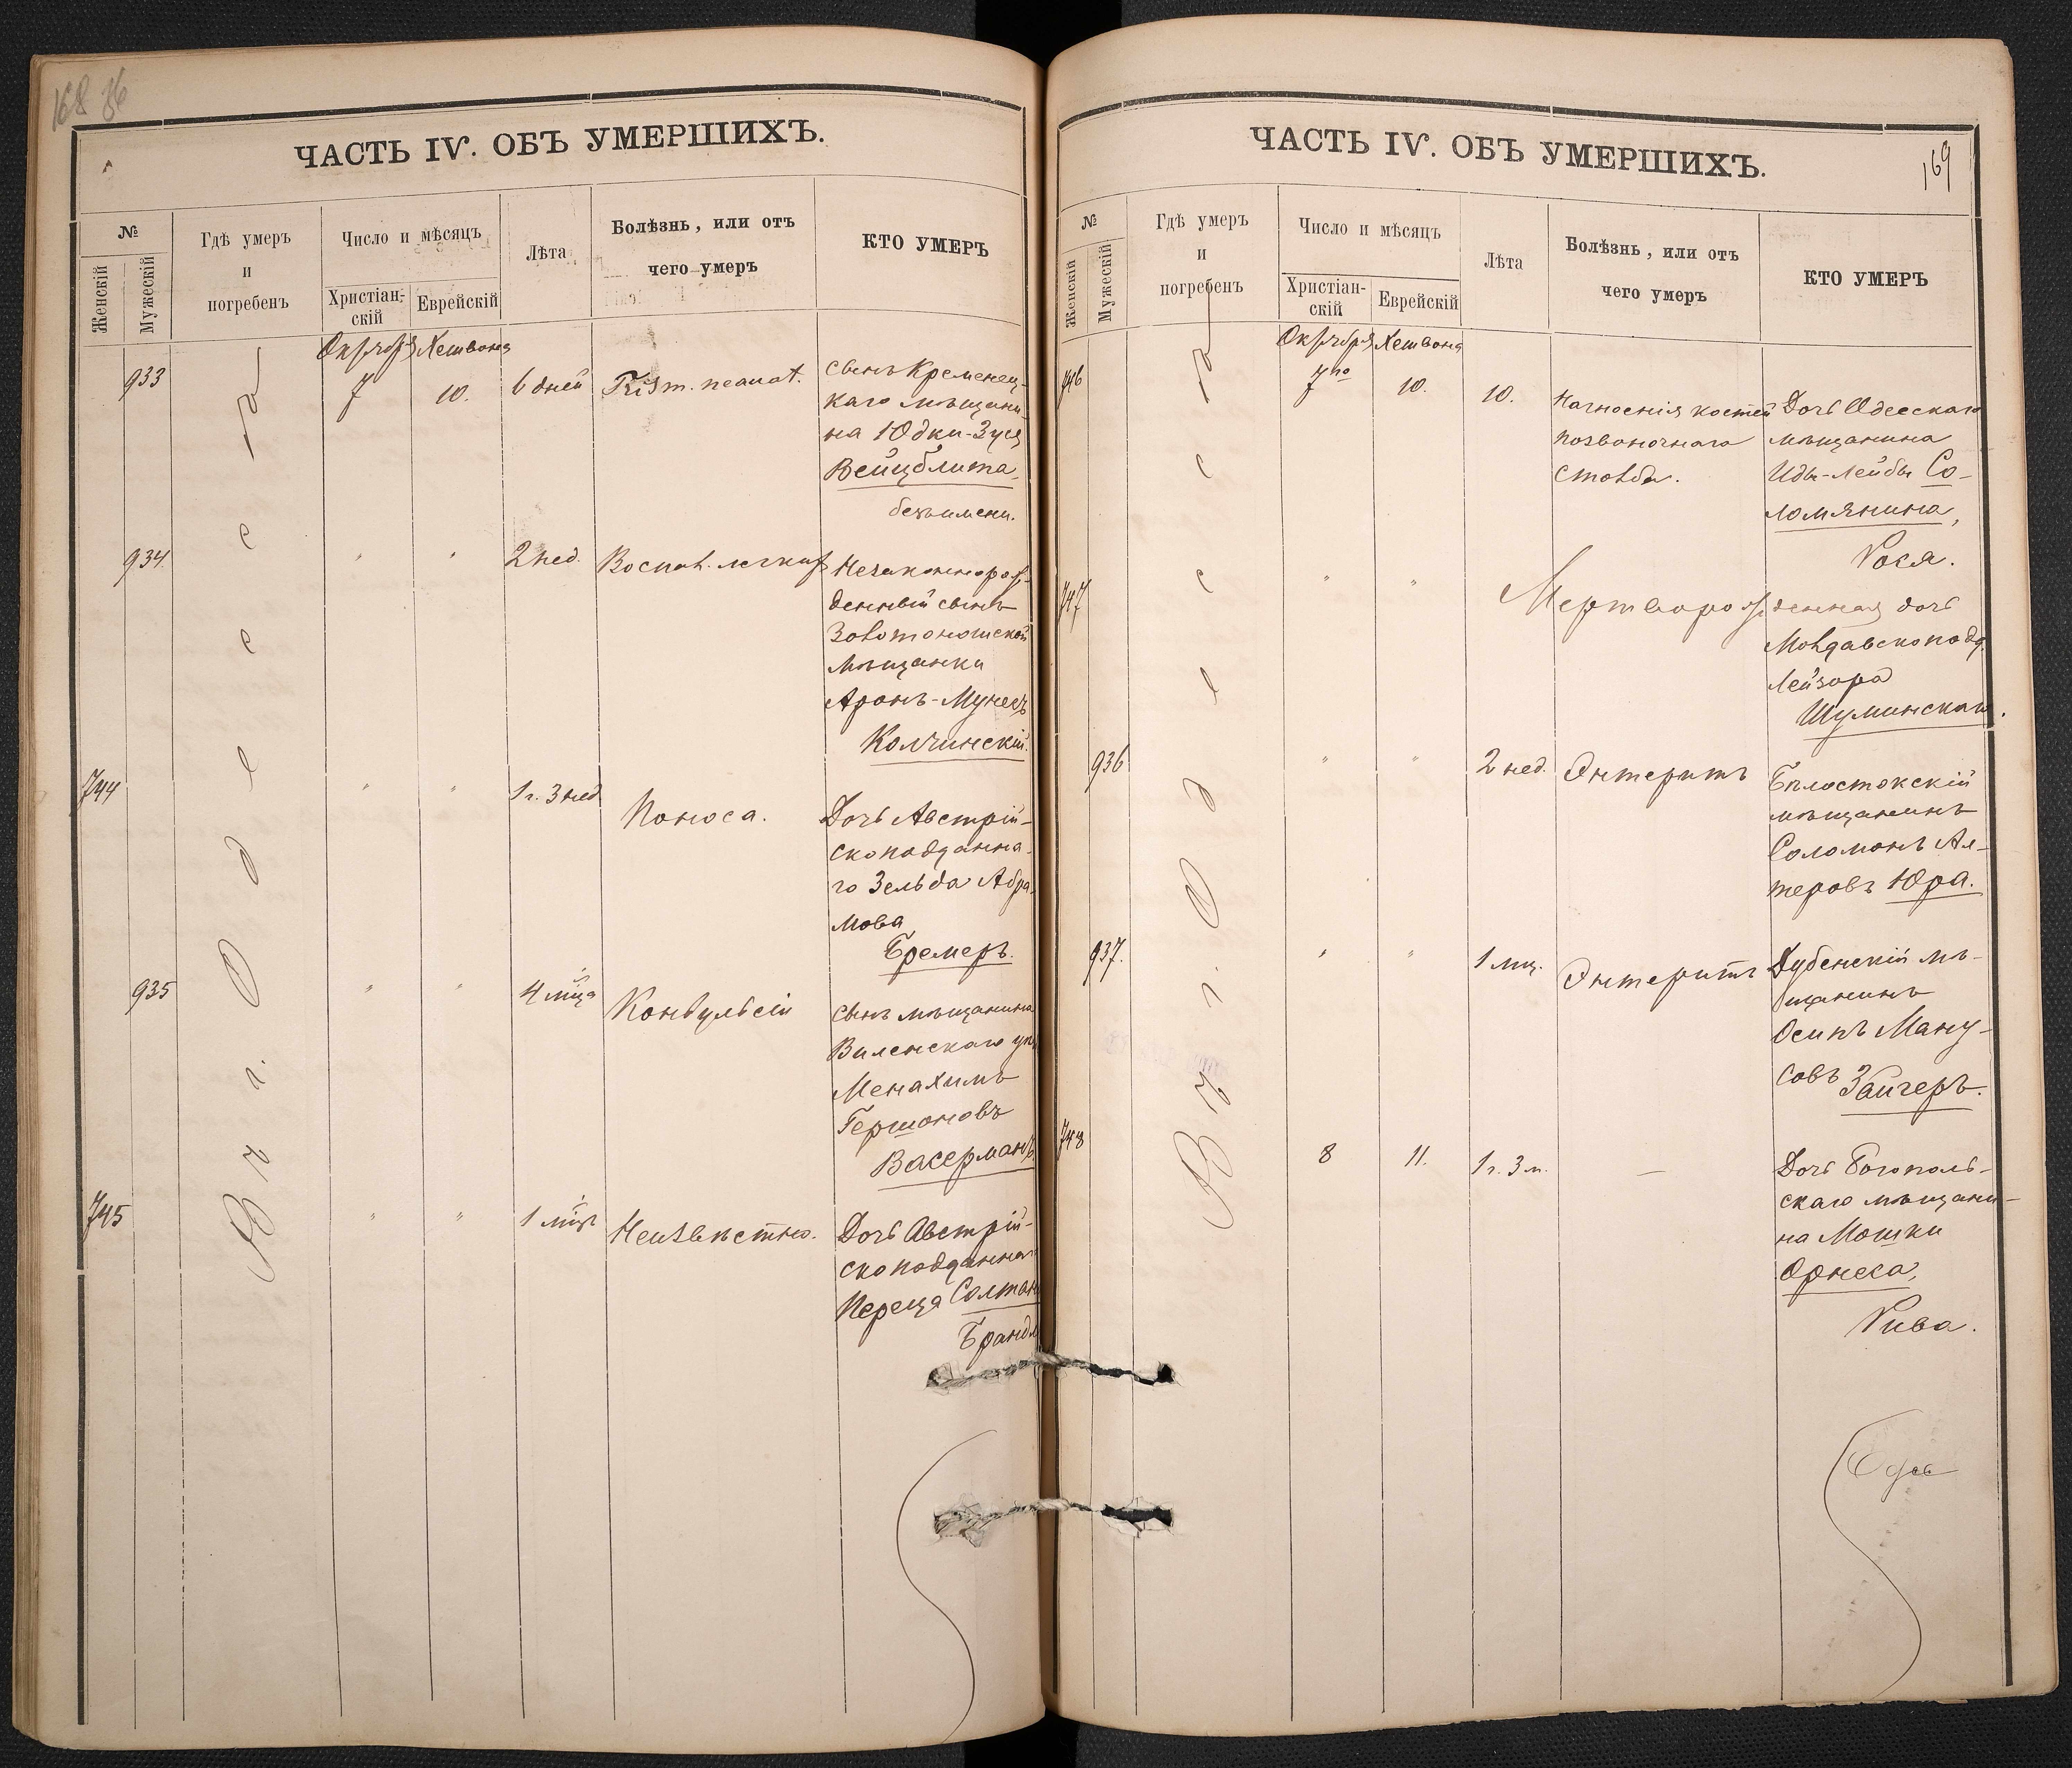 168 86
ЧАСТЬ IV. ОБЪ УМЕРШИХЪ.
№
Женскій
Мужескій
Гдѣ умеръ
и
погребенъ
Число и мѣсяцъ
Христіан-
скій
Еврейскій
Лѣта
Болѣзнь, или отъ
чего умеръ
КТО УМЕРЪ
Въ г. Одессѣ
Октября Хешвона
933
7
10.
6 дней
Trism. neonat.
сынъ Кременец-
каго мѣщани-
на Юдки-Зуся
Вейцблита,
безъ имени.
934
"
"
2 нед.
Воспал. легкихъ
Незаконнорож-
денный сынъ
Золотоношской
мѣщанки
Аронъ-Мунесъ
Колчинскій.
744
"
"
1 г. 3 нед
Поноса.
Дочь Австрій-
скоподданна-
го Зельда Абра-
мова
Бремеръ.
935
"
"
4 мца
Конвульсіи
сынъ мѣщанина
Виленскаго уѣз
Менахимъ
Гершоновъ
Васерманъ.
745
"
"
1 мцъ
Неизвѣстно.
Дочь Австрій-
скоподданна
Переца Солтан
Брандл
ЧАСТЬ IV. ОБЪ УМЕРШИХЪ.
169
№
Женскій
Мужескій
Гдѣ умеръ
и
погребенъ
Число и мѣсяцъ
Христіан-
скій
Еврейскій
Лѣта
Болѣзнь, или отъ
чего умеръ
КТО УМЕРЪ
Въ г. Одессѣ
Октября Хешвона
746
7го
10.
10.
Нагноенія костей
позвоночнаго
столба.
Дочь Одесскаго
мѣщанина
Иды-Лейбы Со-
ломянина,
Рося.
747
"
"
Мертворожденная дочь
Молдавскоподд.
Лейзора
Шуминскаго.
936
"
"
2 нед.
Энтеритъ
Бѣлостокскій
мѣщанинъ
Соломонъ Ал-
теровъ Юра.
937.
"
"
1 мц.
Энтеритъ
Дубенскій мѣ-
щанинъ
Осипъ Ману-
совъ Зайгеръ.
748
8
11.
1 г. 3 м.
—
Дочь Богополь-
скаго мѣщани-
на Мошки
Орнеса,
Рива.